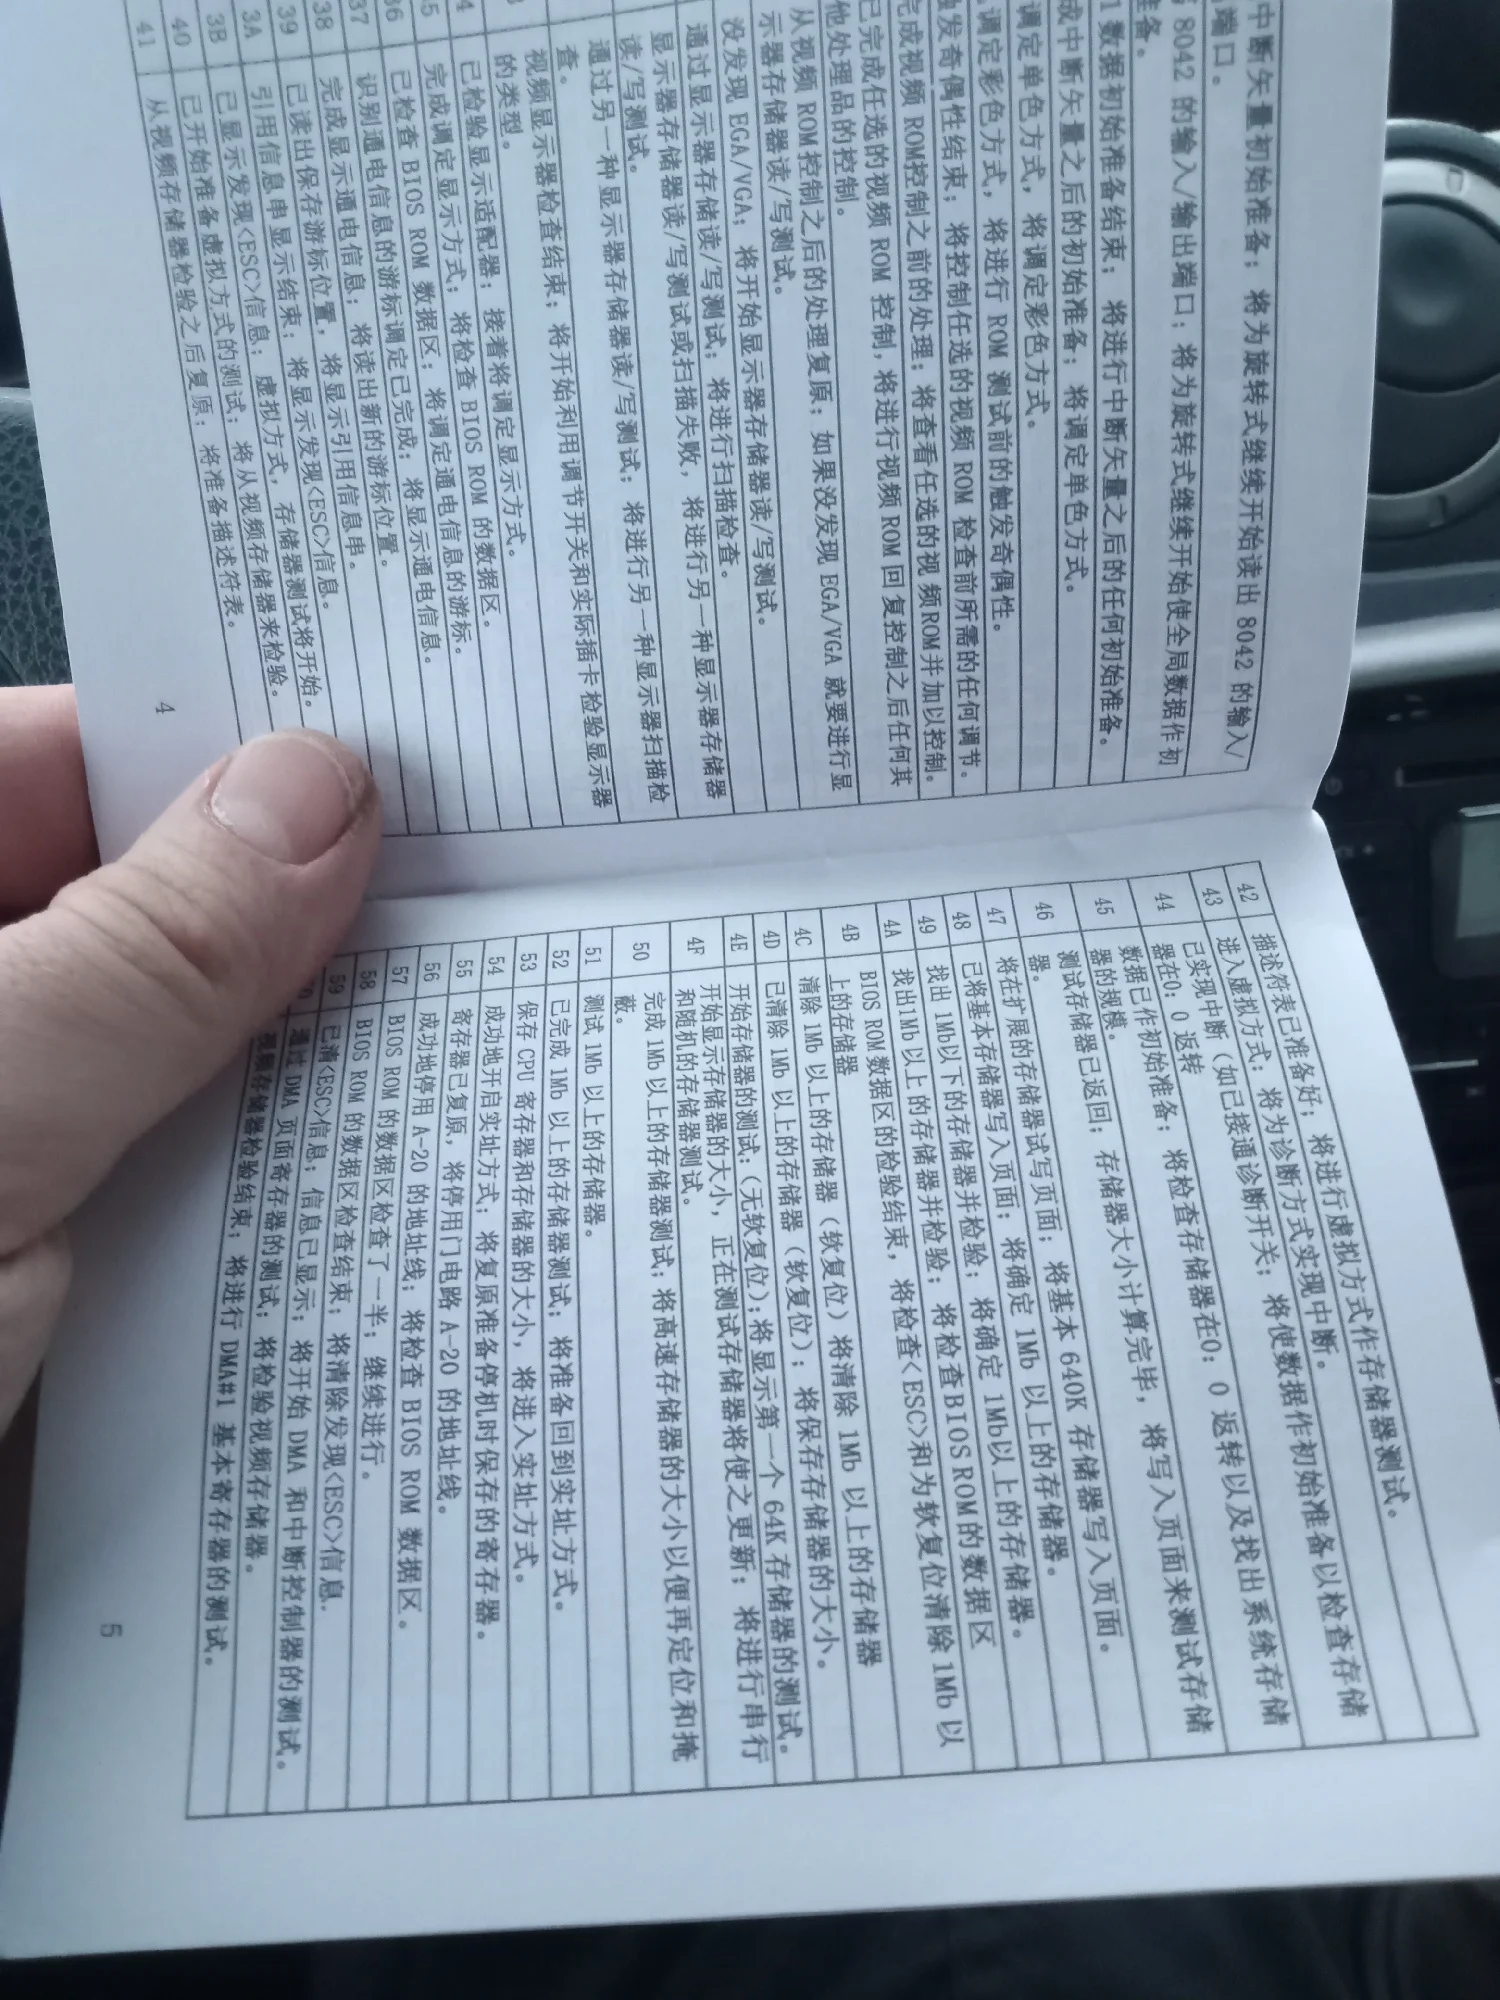 中断矢量初始准备；将为旋转式继续开始读出 8042 的输入/
端口。
8042 的输入/输出端口；将为旋转式继续开始使全局数据作初
准备。
1 数据初始准备结束；将进行中断矢量之后的任何初始准备。
成中断矢量之后的初始准备；将调定单色方式。
调定单色方式，将调定彩色方式。
调定彩色方式，将进行 ROM 测试前的触发奇偶性。
发奇偶性结束；将控制任选的视频 ROM 检查前所需的任何调节。
完成视频 ROM控制之前的处理；将查看任选的视频ROM并加以控制。
已完成任选的视频 ROM 控制，将进行视频 ROM 回复控制之后任何其
他处理品的控制。
从视频 ROM控制之后的处理复原；如果没发现 EGA/VGA 就要进行显
示器存储器读/写测试。
没发现 EGA/VGA；将开始显示器存储器读/写测试。
通过显示器存储读/写测试；将进行扫描检查。
显示器存储器读/写测试或扫描失败，将进行另一种显示器存储器
读/写测试。
通过另一种显示器存储器读/写测试；将进行另一种显示器扫描检
查。
视频显示器检查结束；将开始利用调节开关和实际插卡检验显示器
的类型。
4 已检验显示适配器；接着将调定显示方式。
5 完成调定显示方式；将检查 BIOS ROM 的数据区。
36 已检查 BIOS ROM 数据区；将调定通电信息的游标。
37 识别通电信息的游标调定已完成；将显示通电信息。
38 完成显示通电信息；将读出新的游标位置。
39 已读出保存游标位置，将显示引用信息串。
3A 引用信息串显示结束；将显示发现<ESC>信息。
3B 已显示发现<ESC>信息；虚拟方式，存储器测试将开始。
40 已开始准备虚拟方式的测试；将从视频存储器来检验。
41 从视频存储器检验之后复原；将准备描述符表。
4
42 描述符表已准备好；将进行虚拟方式作存储器测试。
43 进入虚拟方式；将为诊断方式实现中断。
44 已实现中断（如已接通诊断开关；将使数据作初始准备以检查存储
器在0：0 返转
45 数据已作初始准备；将检查存储器在0：0 返转以及找出系统存储
器的规模。
46 测试存储器已返回；存储器大小计算完毕，将写入页面来测试存储
器。
47 将在扩展的存储器试写页面；将基本 640K 存储器写入页面。
48 已将基本存储器写入页面；将确定 1Mb 以上的存储器。
49 找出 1Mb以下的存储器并检验；将确定 1Mb以上的存储器。
4A 找出1Mb 以上的存储器并检验；将检查BIOS ROM的数据区
4B BIOS ROM数据区的检验结束，将检查<ESC>和为软复位清除 1Mb 以
上的存储器
4C 清除 1Mb 以上的存储器（软复位）将清除 1Mb 以上的存储器
4D 已清除 1Mb 以上的存储器（软复位）；将保存存储器的大小。
4E 开始存储器的测试：（无软复位）；将显示第一个 64K 存储器的测试。
4F 开始显示存储器的大小，正在测试存储器将使之更新；将进行串行
和随机的存储器测试。
50 完成 1Mb 以上的存储器测试；将高速存储器的大小以便再定位和掩
蔽。
51 测试 1Mb 以上的存储器。
52 已完成 1Mb 以上的存储器测试；将准备回到实址方式。
53 保存 CPU 寄存器和存储器的大小，将进入实址方式。
54 成功地开启实址方式；将复原准备停机时保存的寄存器。
55 寄存器已复原，将停用门电路 A-20 的地址线。
56 成功地停用 A-20 的地址线；将检查 BIOS ROM 数据区。
57 BIOS ROM 的数据区检查了一半；继续进行。
58 BIOS ROM 的数据区检查结束；将清除发现<ESC>信息。
59 已清<ESC>信息；信息已显示；将开始 DMA 和中断控制器的测试。
通过 DMA 页面寄存器的测试；将检验视频存储器。
视频存储器检验结束；将进行 DMA#1 基本寄存器的测试。
5